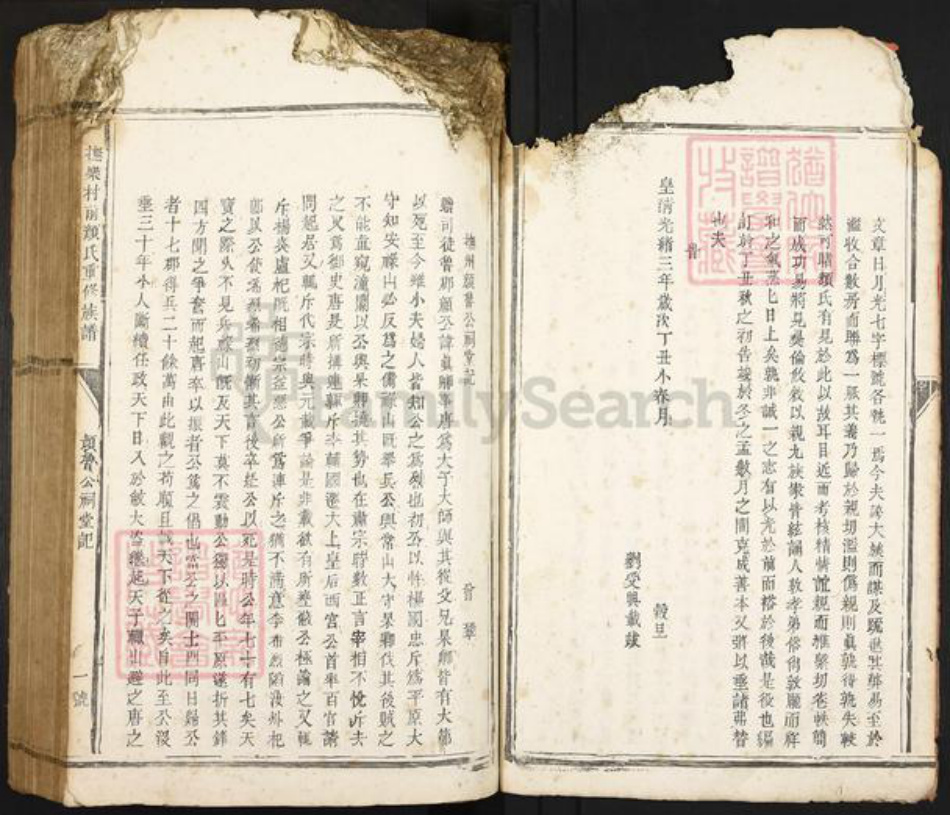 文章日月光七字標號各執一焉今夫誇大族而謀及疏遠其弊易至於
濫收合數房而聯為一脈其義乃歸於親切濫則偽親則真孰得孰失較
然可睹顏氏有見於此以故耳目近而考核精情誼親而維繫切卷帙簡
而成功易將見彝倫敘以親九族衆皆絃誦人敦孝弟俗尚敦龐而
和之氣蒸蒸日上矣孰非誠一之志有以光於前而裕於後哉是役也編
訂於丁丑秋之初告竣於冬之孟數月之間克成善本又將以垂諸弗替
也夫
皇清光緒三年歲次丁丑小春月 穀旦
劉受輿載
撫州顏魯公祠堂記 曾鞏
贈司徒魯郡顏公諱真卿事唐為太子太師與其從父兄杲卿皆有大節
以死至今雖小夫婦人皆知公之為烈也初公以忤楊國忠斥為平原太
守知安祿山必反為之備祿山既舉兵公與常山太守杲卿伐其後賊之
不能直窺潼關以公與杲卿撓其勢也在肅宗時數正言宰相不悅斥去
之又為御史唐旻所搆連輒斥李輔國遷大上皇居西宮公首率百官請
問起居又輒斥代宗時與元載爭論是非載欲有所壅蔽公極論之又輒
斥楊炎盧杞既相德宗益惡公所為連斥之猶不滿意李希烈陷汝州杞
即以公使希烈希烈初慚其言後卒縊公以死是時公年七十有七矣天
寶之際久不見兵祿山既反天下莫不震動公獨以區區平原遂折其鋒
四方聞之爭奮而起唐卒以振者公為之倡也當公之開土門同日歸公
者十七郡得兵二十餘萬由此觀之苟順且誠天下從之矣自此至公歿
垂三十年小人斷續任政天下日入於敝大盜繼起天子輒出避之唐之
撫樂村前顏氏重修族譜
顏魯公祠堂記
一號
FamilySearch